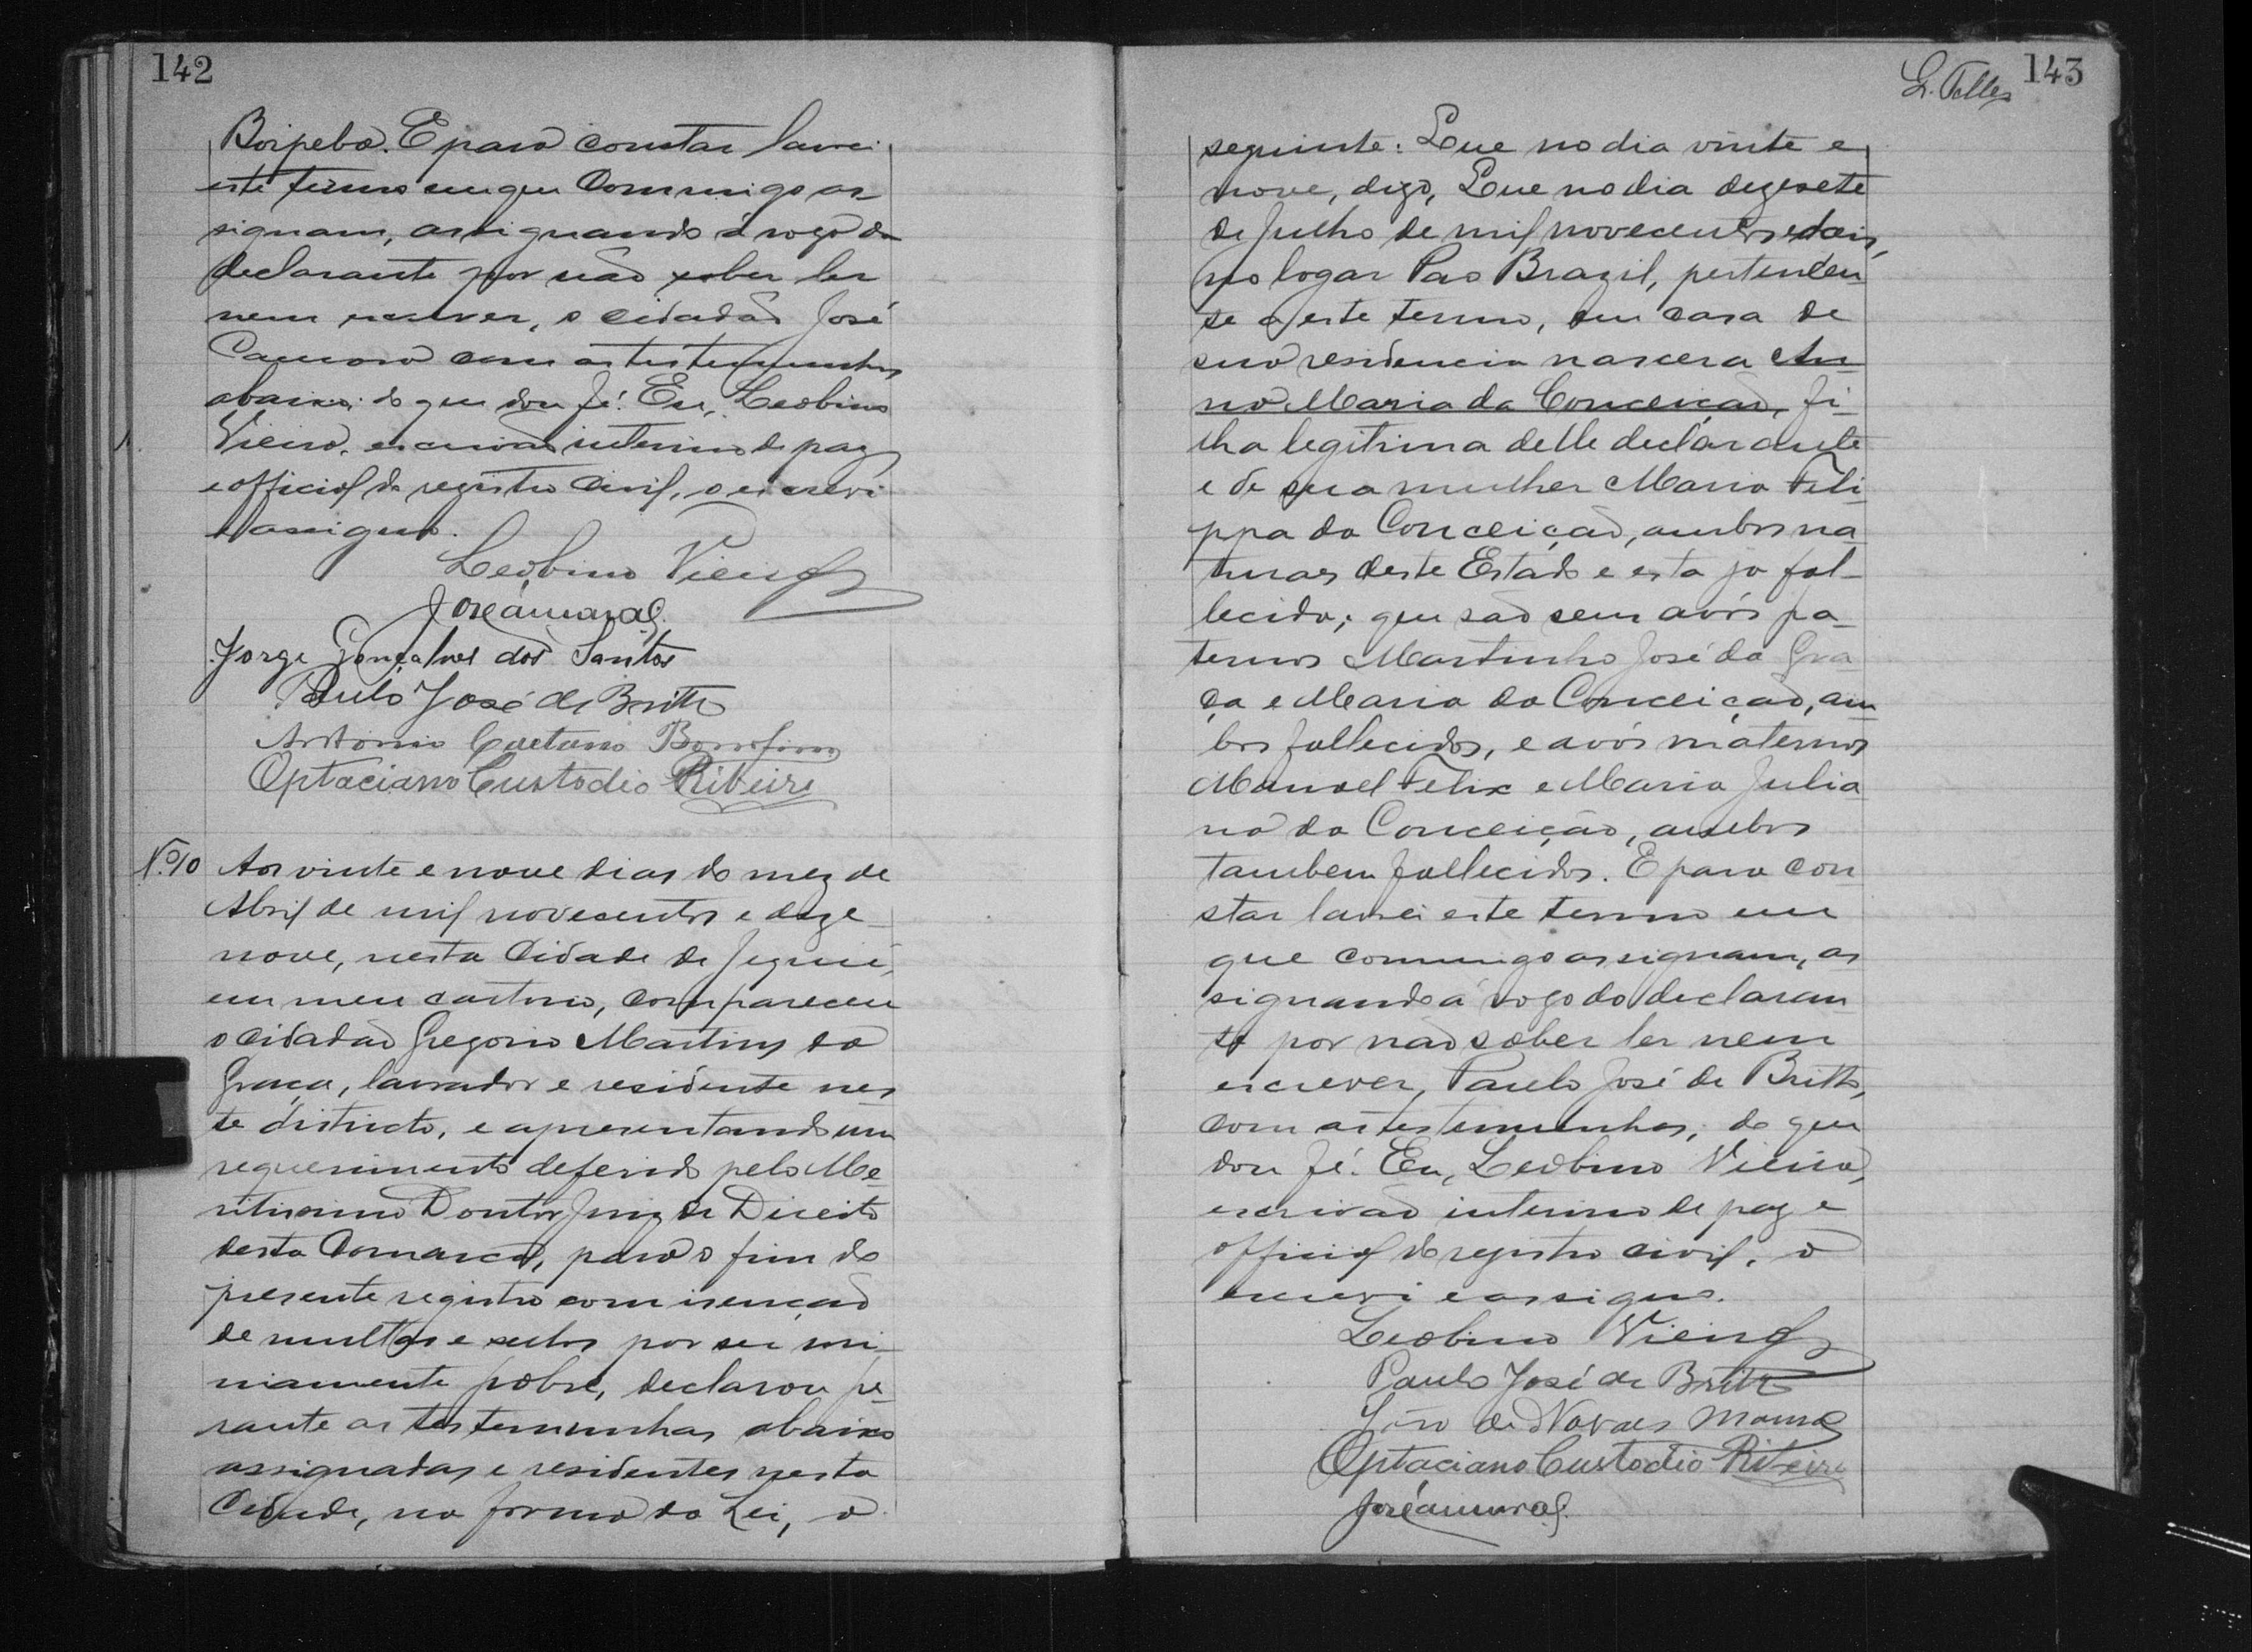 142
Boipeba. E para constar lavrei
este termo em que commigo as-
signam, assignando á rogo do
declarante por não saber ler
nem escrever, o cidadão José
com as testemunhas
abaixo; do que dou fé. Eu, Leobino
Vieira, escrivão interino de paz
e official do registro civil, o escrevi
e assigno.
Leobino Vieira
José Amaral.
Jorge Gonçalves dos Santos
Paulo José de Britto
Antonio Caetano Bomfim
Optaciano Custodio Ribeiro
N.º 10 Aos vinte e nove dias do mez de
Abril de mil novecentos e deze-
nove, nesta Cidade de Jequié,
em meu cartorio, compareceu
o cidadão Gregorio Martins da
Graça, lavrador e residente nes
te districto, e apresentando um
requerimento deferido pelo Me-
ritissimo Doutor Juiz de Direito
desta Comarca, para o fim do
presente registro com isenção
de multas e sellos por ser mi-
niamente pobre, declarou pe-
rante as testemunhas abaixo
assignadas e residentes nesta
Cidade, na forma da Lei, o
L. Telles 143
seguinte: Que no dia vinte e
nove, digo, Que no dia dezesete
de Julho de mil novecentos e dois,
no logar Pao Brazil, pertencen
te a este termo, em casa de
sua residencia nascera An-
na Maria da Conceição, fi-
lha legitima delle declarante
e de sua mulher Maria Feli-
ppa da Conceição, ambos na-
turaes deste Estado e esta ja fal-
lecida; que são seus avós pa-
ternos Martinho José da Gra-
ça e Maria da Conceição, am
bos fallecidos, e avós maternos
Manoel Felix e Maria Julia-
na da Conceição, ambos
tambem fallecidos. E para con
star lavrei este termo em
que commigo assignam, as
signando á rogo do declaran
te por não saber ler nem
escrever, Paulo José de Britto,
com as testemunhas; do que
dou fé. Eu, Leobino Vieira,
escrivão interino de paz e
official do registro civil, o
escrevi e assigno.
Leobino Vieira
Paulo José de Britto
de Novaes
Optaciano Custodio Ribeiro
José Amaral.